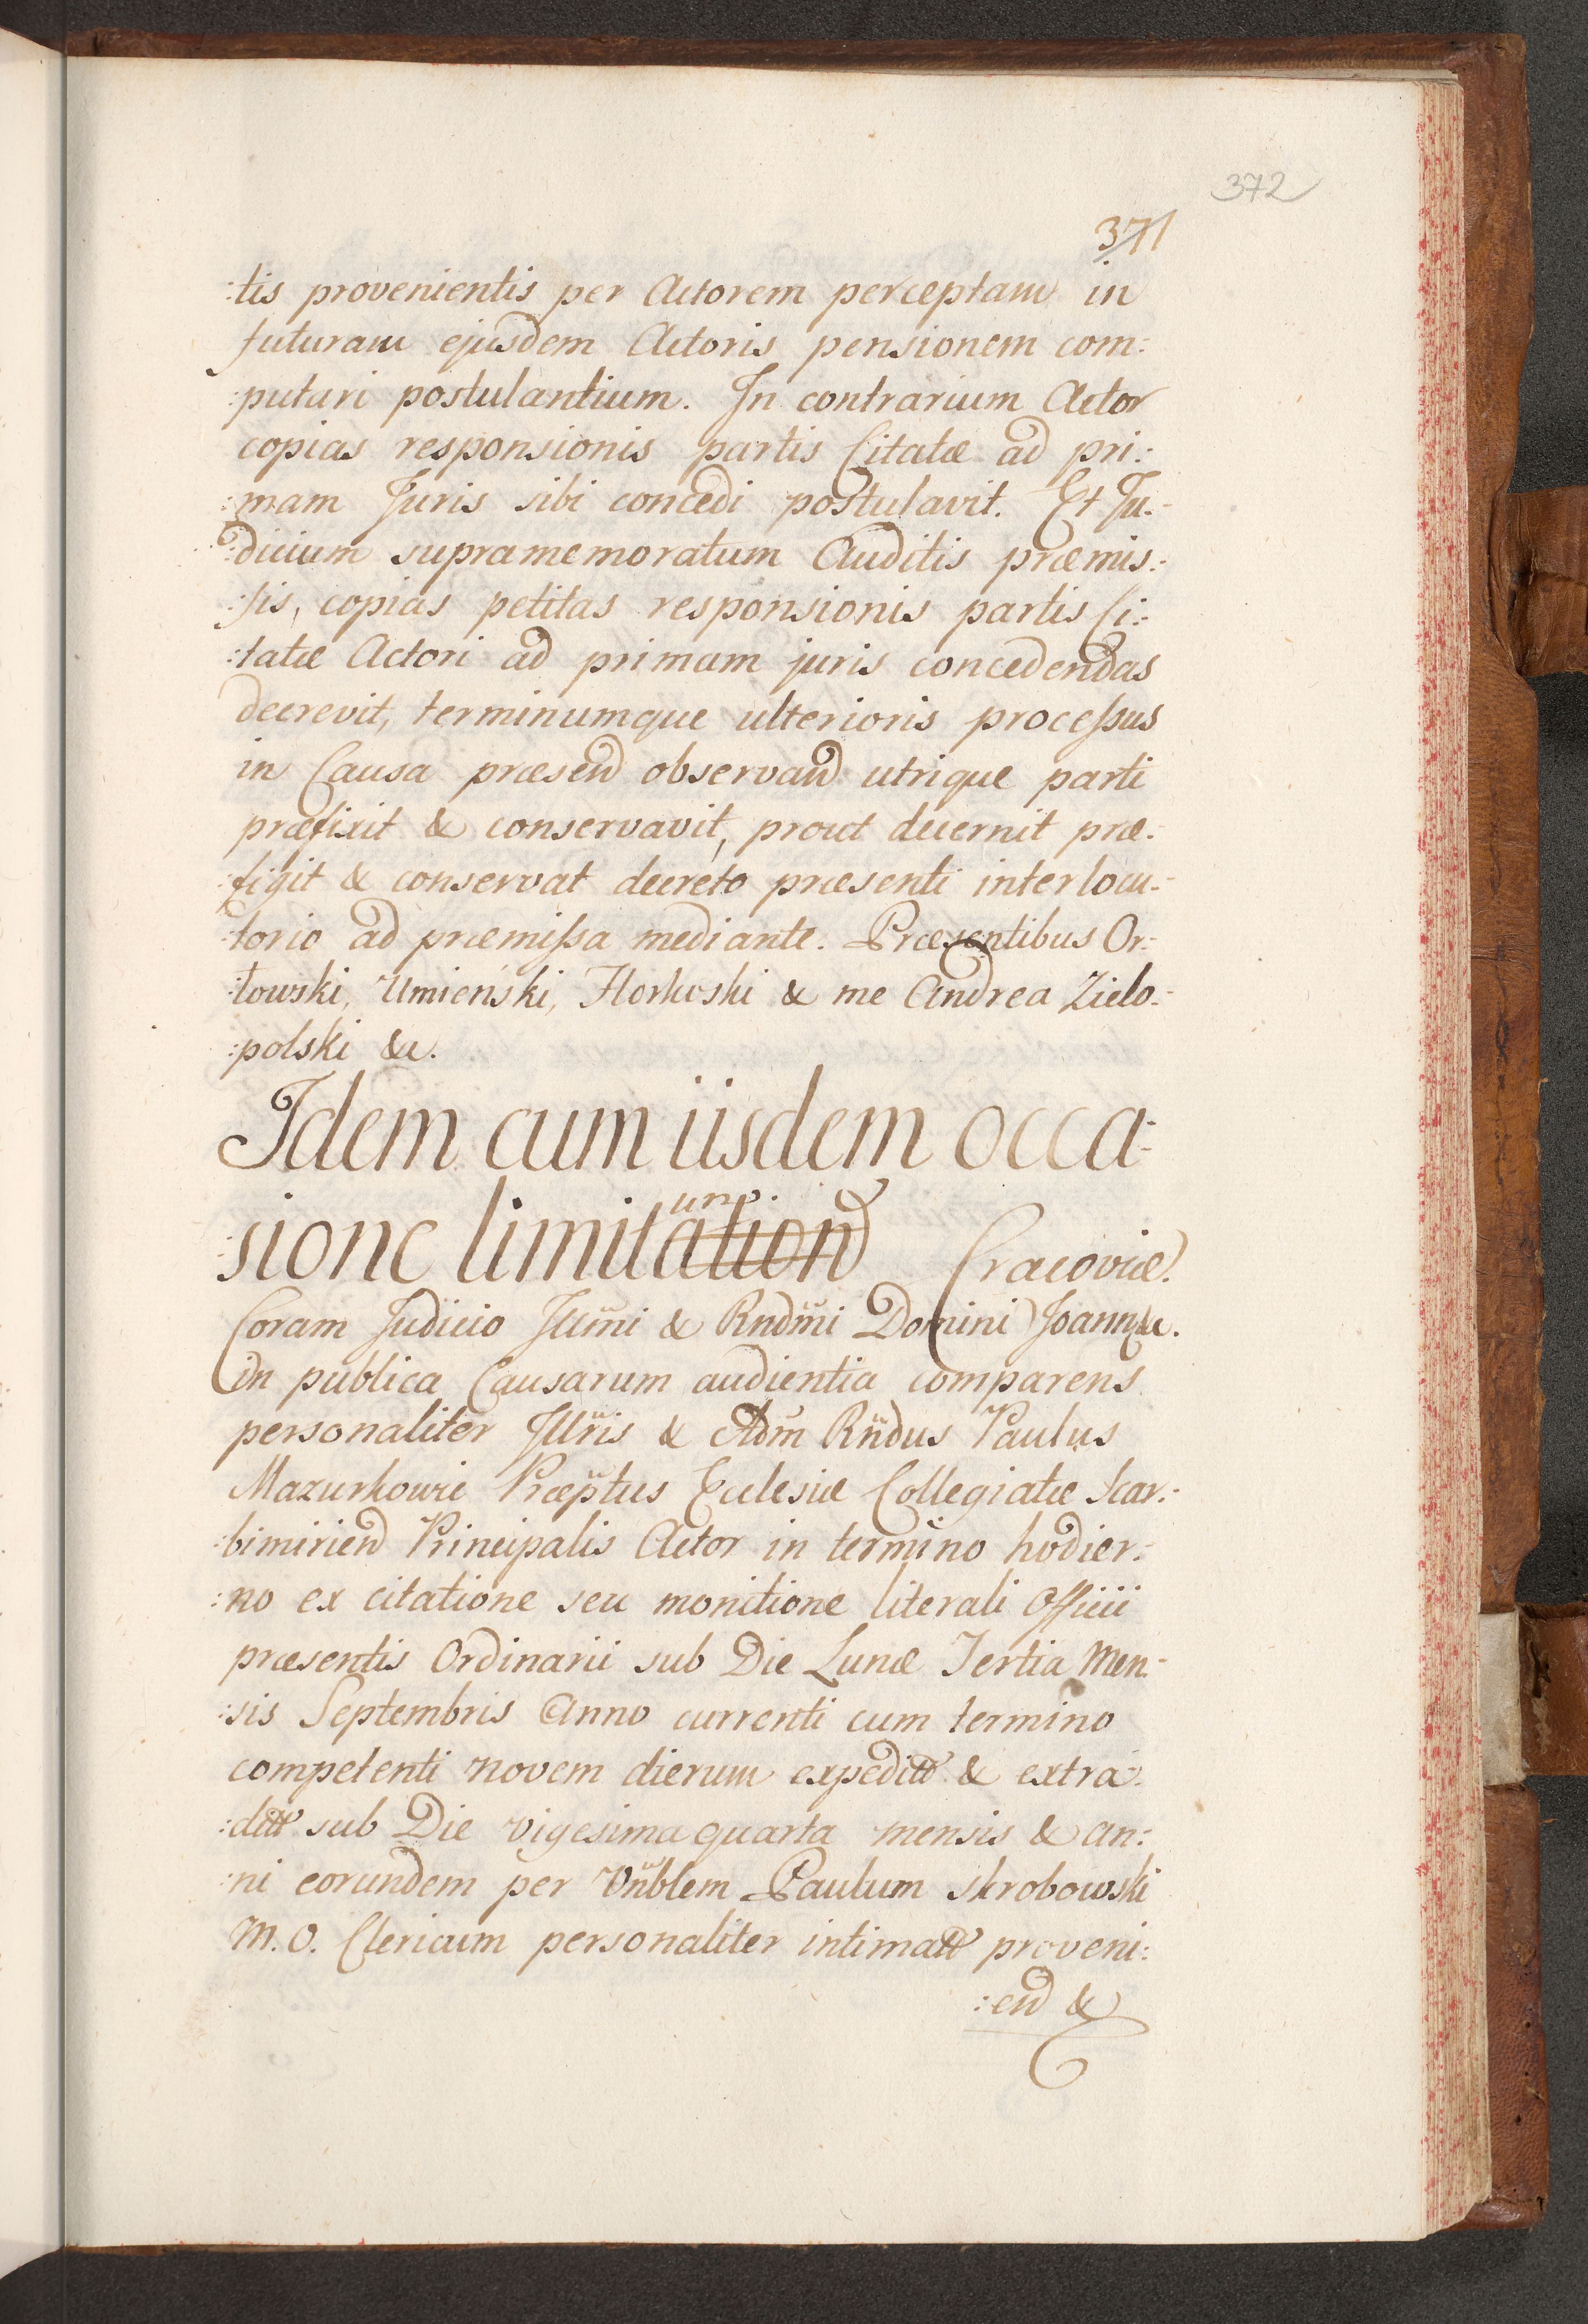 372
371
:tis provenientis per Actorem perceptam in
futuram ejusdem Actoris pensionem com:
:putari postulantium. In contrarium Actor
copias responsionis partis Citatæ ad pri:
:mam Juris sibi concedi postulavit. Et Ju:
:dicium supramemoratum Auditis præmis:
:sis, copias petitas responsionis partis Ci:
:tatæ Actori ad primam juris concedendas
decrevit, terminumque ulterioris processus
in Causa præsen observan utrique parti
præfixit & conservavit, prout decernit præ:
:figit & conservat decreto præsenti interlocu:
:torio ad præmissa mediante. Præsentibus Or:
:łowski, Umieński, Florkwski & me Andrea Zielo:
:polski &c.
Idem cum iisdem occa:
:sione limitation Cracoviæ.
Coram Judicio Illmi & Rndmi Domini Joann &c.
in publica Causarum audientia comparens
personaliter Illris & Adm Rndus Paulus
Mazurkowic Præptus Ecclesiæ Collegiatæ Scar:
:bimirien Principalis Actor in termino hodier:
:no ex citatione seu monitione literali Officii
præsentis Ordinarii sub Die Lunæ Tertia Men:
:sis Septembris Anno currenti cum termino
competenti novem dierum expeditt & extra:
:ditt sub Die vigesima quarta mensis & an:
:ni eorundem per Vnblem Paulum Skrobowski
M. O. Clericum personaliter intimatt proveni:
:en &